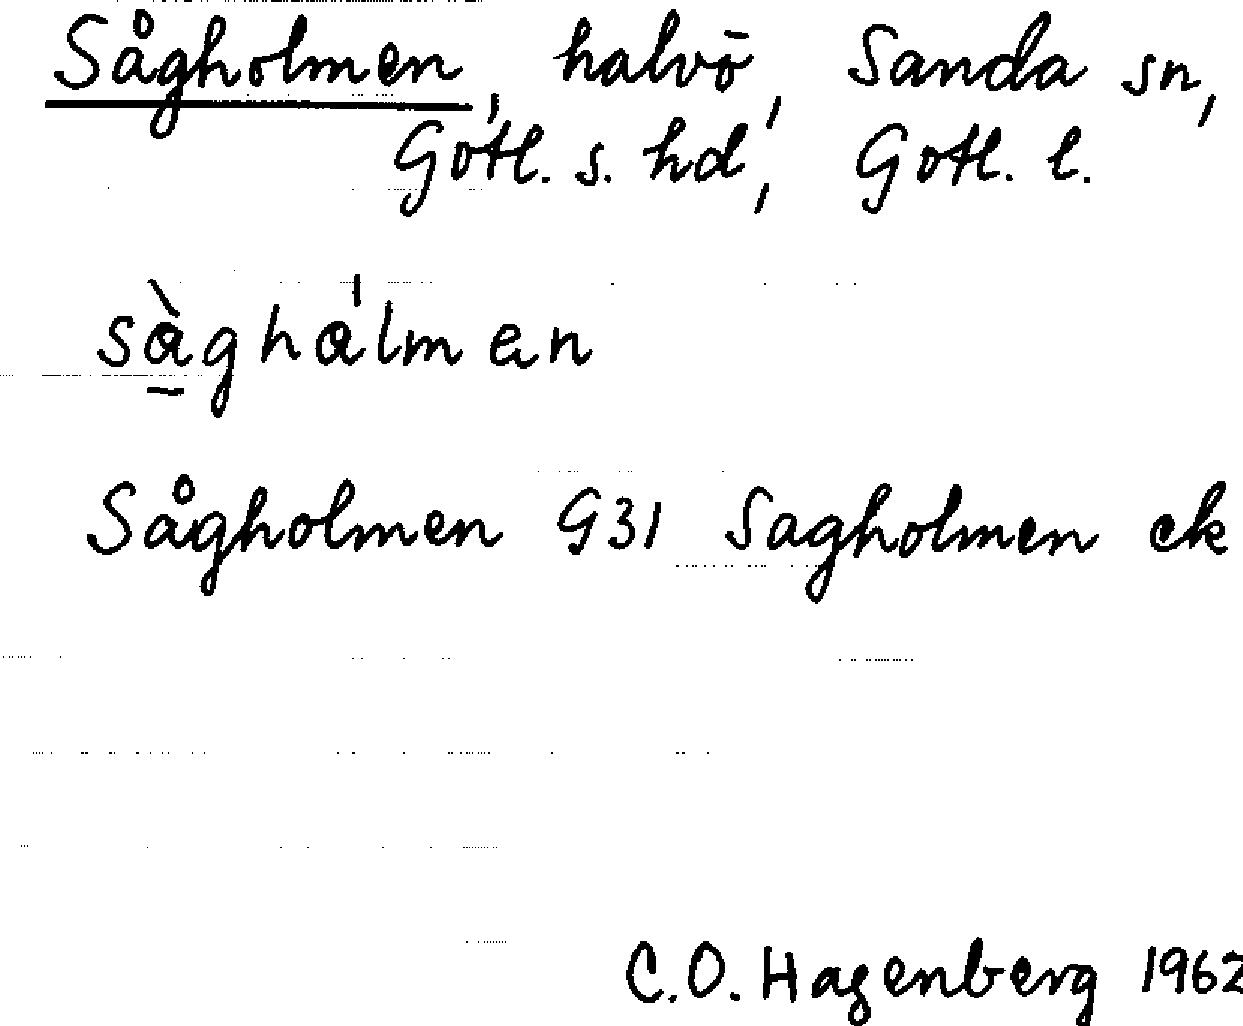 Sågholmen, halvö, Sanda sn,
Gotl. s. hd, Gotl. l.
sà̱ghálmen
Sågholmen G31 Sagholmen ek
C.O. Hagenberg 1962